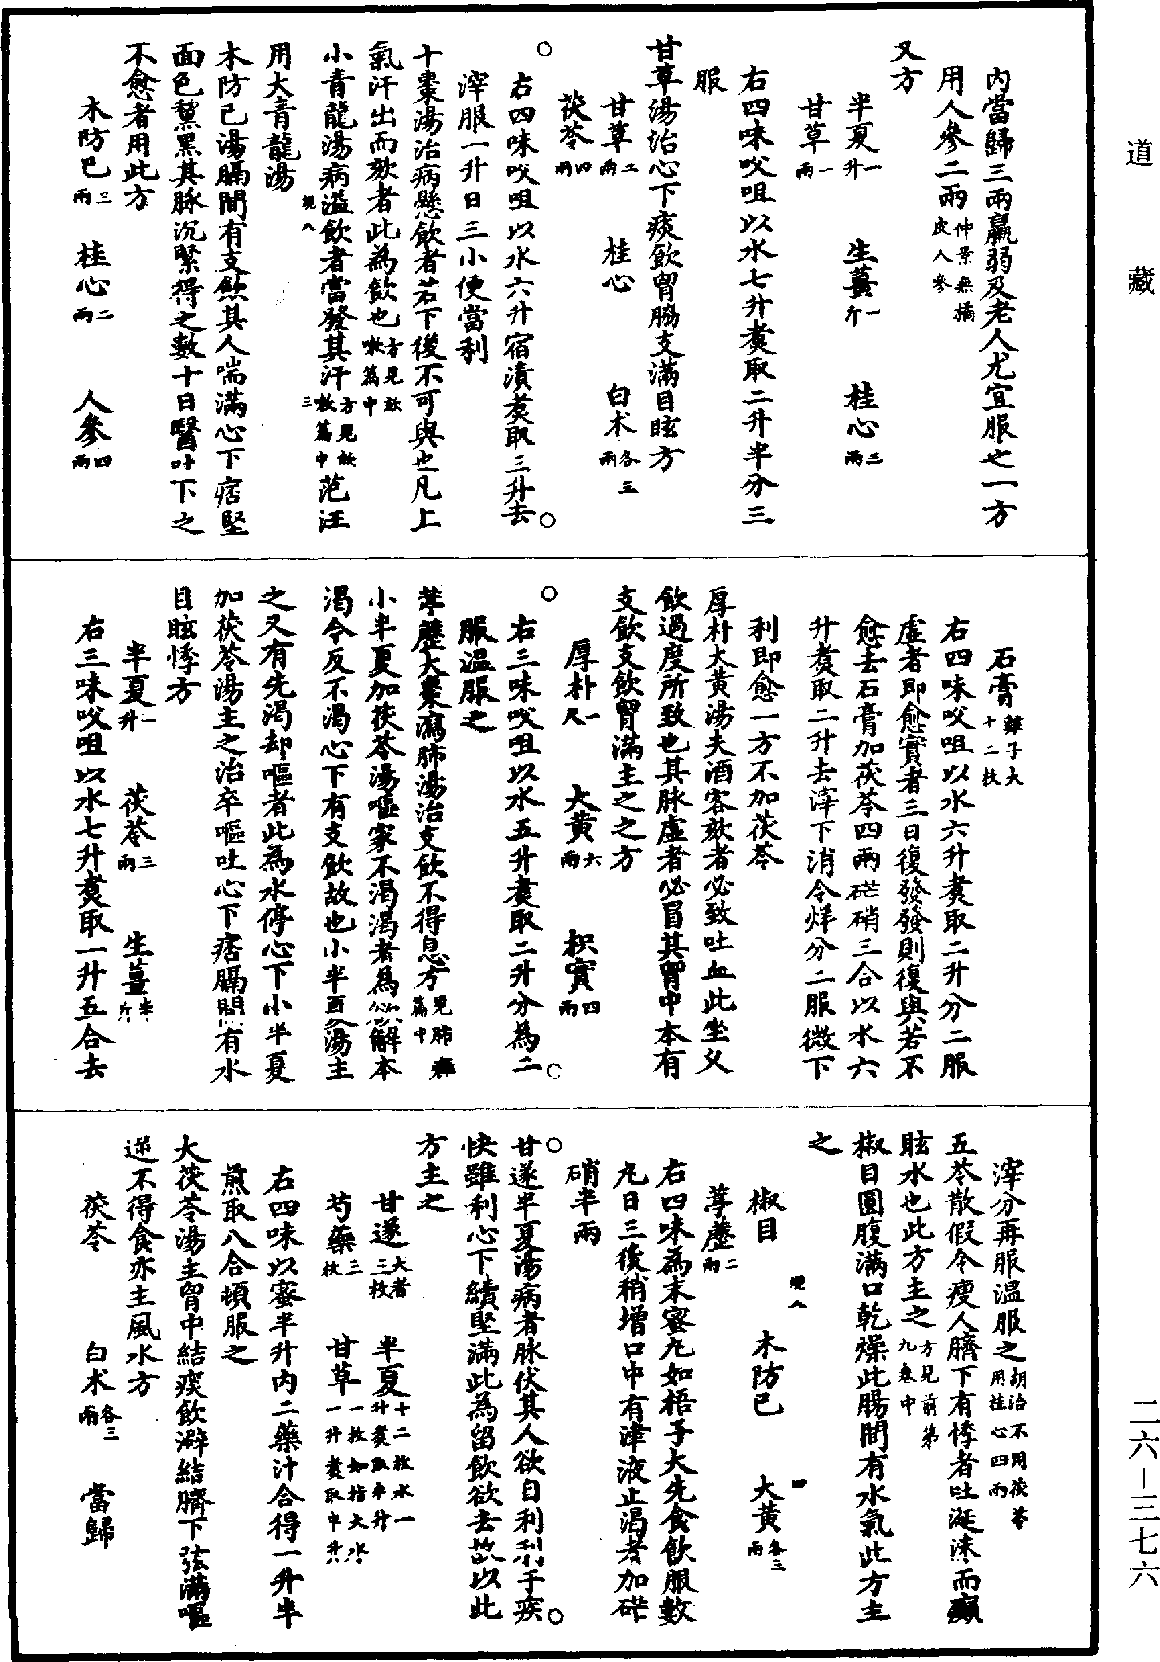 道藏
內當歸三兩羸弱及老人尤宜服之一方
用人參二兩仲景無橘皮人參
又方
半夏一升　生薑一斤　桂心三兩
甘草一兩
右四味㕮咀以水七升煑取二升半分三
服
甘草湯治心下痰飲胷脇支滿目眩方
甘草二兩　桂心　白术各三兩
茯苓四兩
右四味㕮咀以水六升宿漬煑取三升去
滓服一升日三小便當利
十棗湯治病懸飲者若下後不可與也凡上
氣汗出而欬者此為飲也方見欬嗽篇中
小青龍湯病溢飲者當發其汗方見欬嗽篇中范汪
用大青龍湯
木防已湯膈間有支飲其人喘滿心下痞堅
面色黧黑其脉沉緊得之數十日醫吐下之
不愈者用此方
木防已三兩　桂心二兩　人參四兩
石膏雞子大十二枚
右四味㕮咀以水六升煑取二升分二服
虛者即愈實者三日復發發則復與若不
愈去石膏加茯苓四兩硭硝三合以水六
升煑取二升去滓下消令烊分二服微下
利即愈一方不加茯苓
厚朴大黃湯夫酒客欬者必致吐血此坐义
飲過度所致也其脉虛者必冒其胷中本有
支飲支飲胷滿主之之方
厚朴一尺　大黃六兩　枳實四兩
右三味㕮咀以水五升煑取二升分為二
服溫服之
葶藶大棗瀉肺湯治支飲不得息方見肺癰篇中
小半夏加茯苓湯嘔家不渴渴者為欲解本
渴今反不渴心下有支飲故也小半夏湯主
之又有先渴却嘔者此為水停心下小半夏
加茯苓湯主之治卒嘔吐心下痞膈間有水
目眩悸方
半夏一升　茯苓三兩　生薑半斤
右三味㕮咀以水七升煑取一升五合去
滓分再服溫服之胡洽不用茯苓用桂心四兩
五苓散假令瘦人臍下有悸者吐涎沫而癲
眩水也此方主之方見前第九卷中
椒目圓腹滿口乾燥此腸間有水氣此方主
之
椒目　木防已　大黃各三兩
葶藶二兩
右四味為末蜜丸如梧子大先食飲服數
九日三後稍增口中有津液止渴者加硭
硝半兩
甘遂半夏湯病者脉伏其人欲自利利于疾
快雖利心下續堅滿此為留飲欲去故以此
方主之
甘遂大者三枚　半夏十二枚水一升煑取半升
芍藥三枚　甘草一枚如指大水一升煑取半升
右四味以蜜半升內二藥汁合得一升半
煎取八合頓服之
大茯苓湯主胷中結痰飲澼結臍下弦滿嘔
逆不得食亦主風水方
茯苓　白术各三兩　當歸
二六—三七六